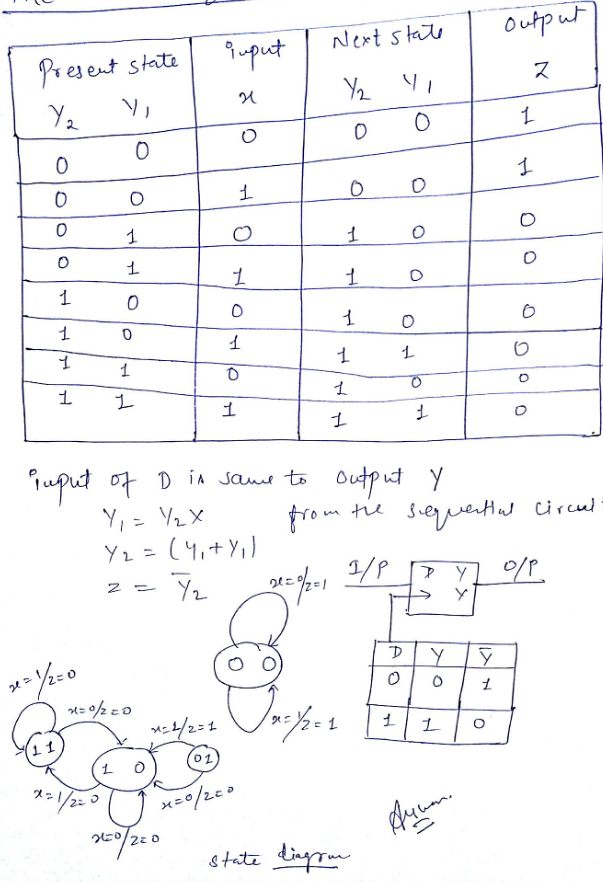 Present state input Next state output
Y2 Y1 x Y2 Y1 Z
0 0 0 0 0 1
0 0 1 0 0 1
0 1 0 1 0 0
0 1 1 1 0 0
1 0 0 1 0 0
1 0 1 1 1 0
1 1 0 1 0 0
1 1 1 1 1 0
input of D is same to output Y
Y1 = Y2X from the sequential circuit
Y2 = (Y1+Y1)
z = Y̅2
x=0/z=1
I/P D Y O/P
Y
0 0
D Y Y̅
0 0 1
1 1 0
x=1/z=0
x=0/z=0
x=1/z=1
x=1/z=1
1 1
1 0
01
x=1/z=0
x=0/z=0
x=0/z=0
state diagram